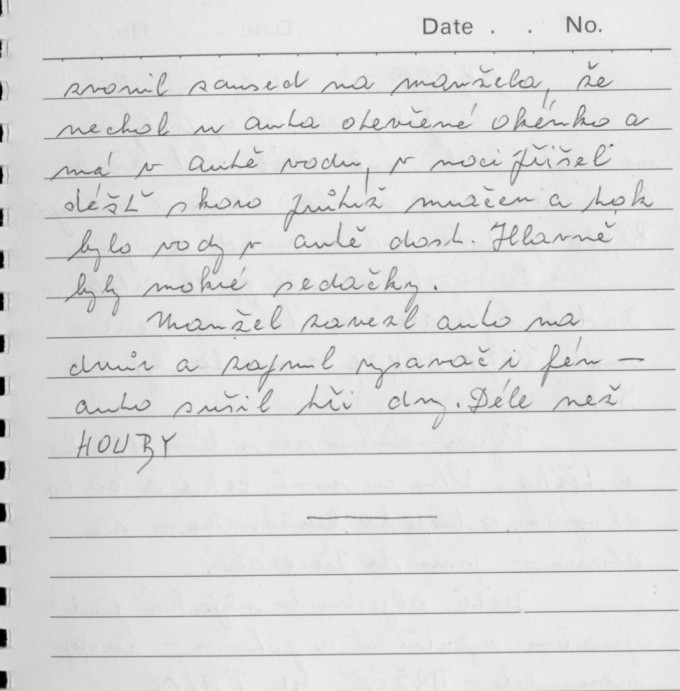 Date . . No.
zvonil soused na manžela, že
nechal u auta otevřené okénko a
má v autě vodu, v noci přišel
déšť skoro průtrž mračen a tak
bylo vody v autě dost. Hlavně
byly mokré sedačky.
Manžel zavezl auto na
dvůr a zapnul vysavač i fén –
auto sušil tři dny. Déle než
HOUBY